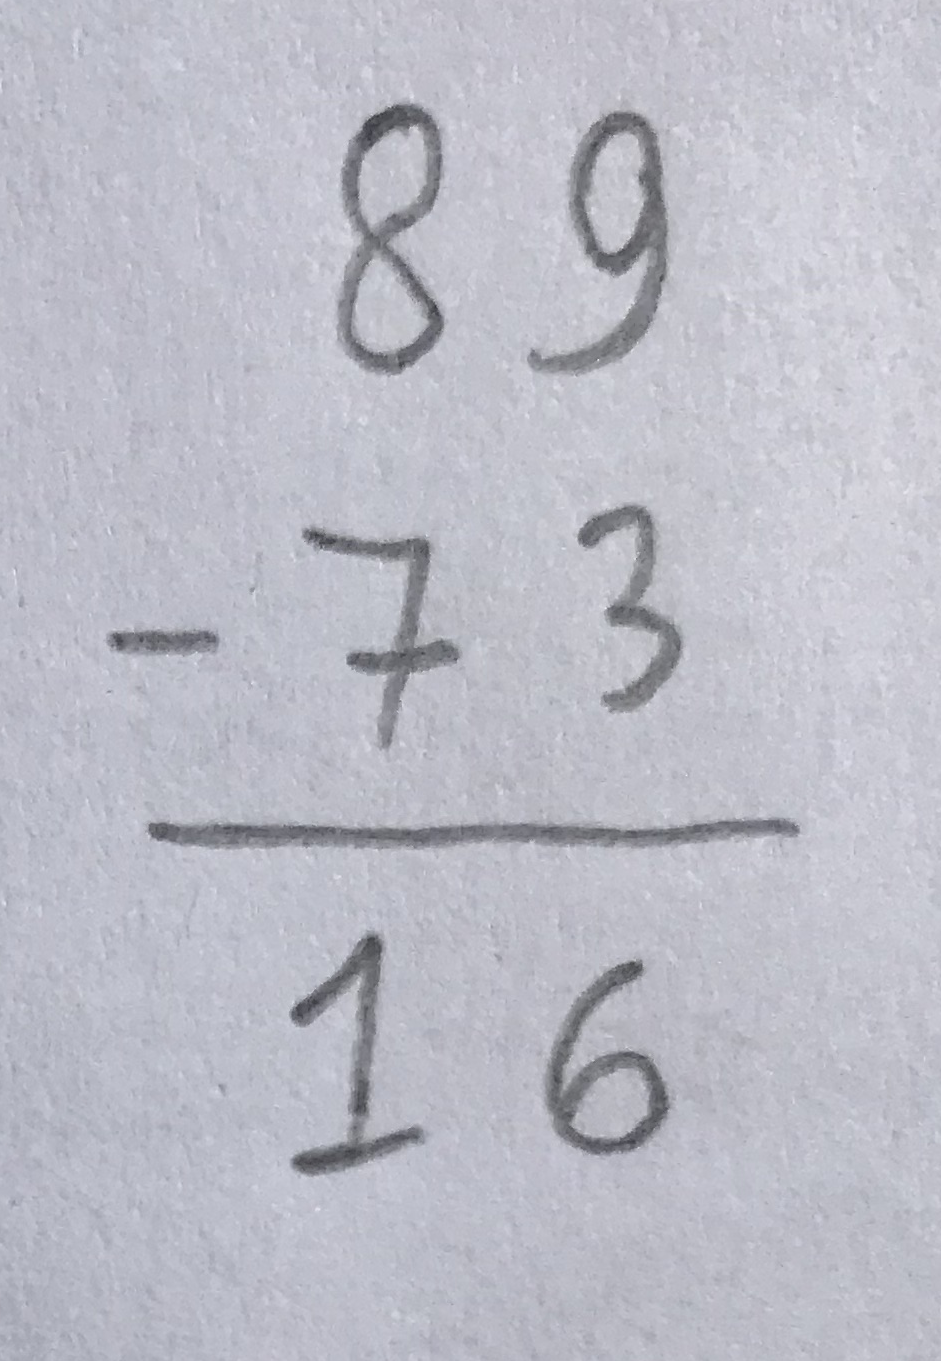 89
-73
16